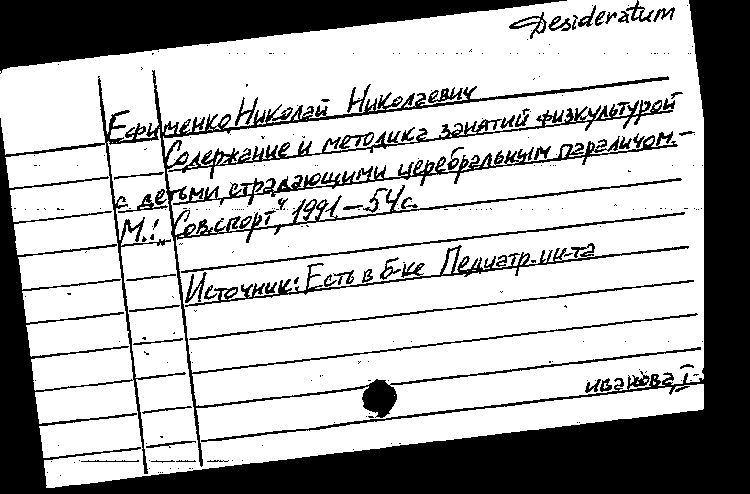 Desideratum
Ефименко, Николай Николаевич
Содержание и методика занятий физкультурой
с детьми, страдающими церебральным параличом.-
М.: „Сов.спорт“, 1991.-54с.
Источник: Есть в б-ке Педиатр.ин-та
иванова, I-